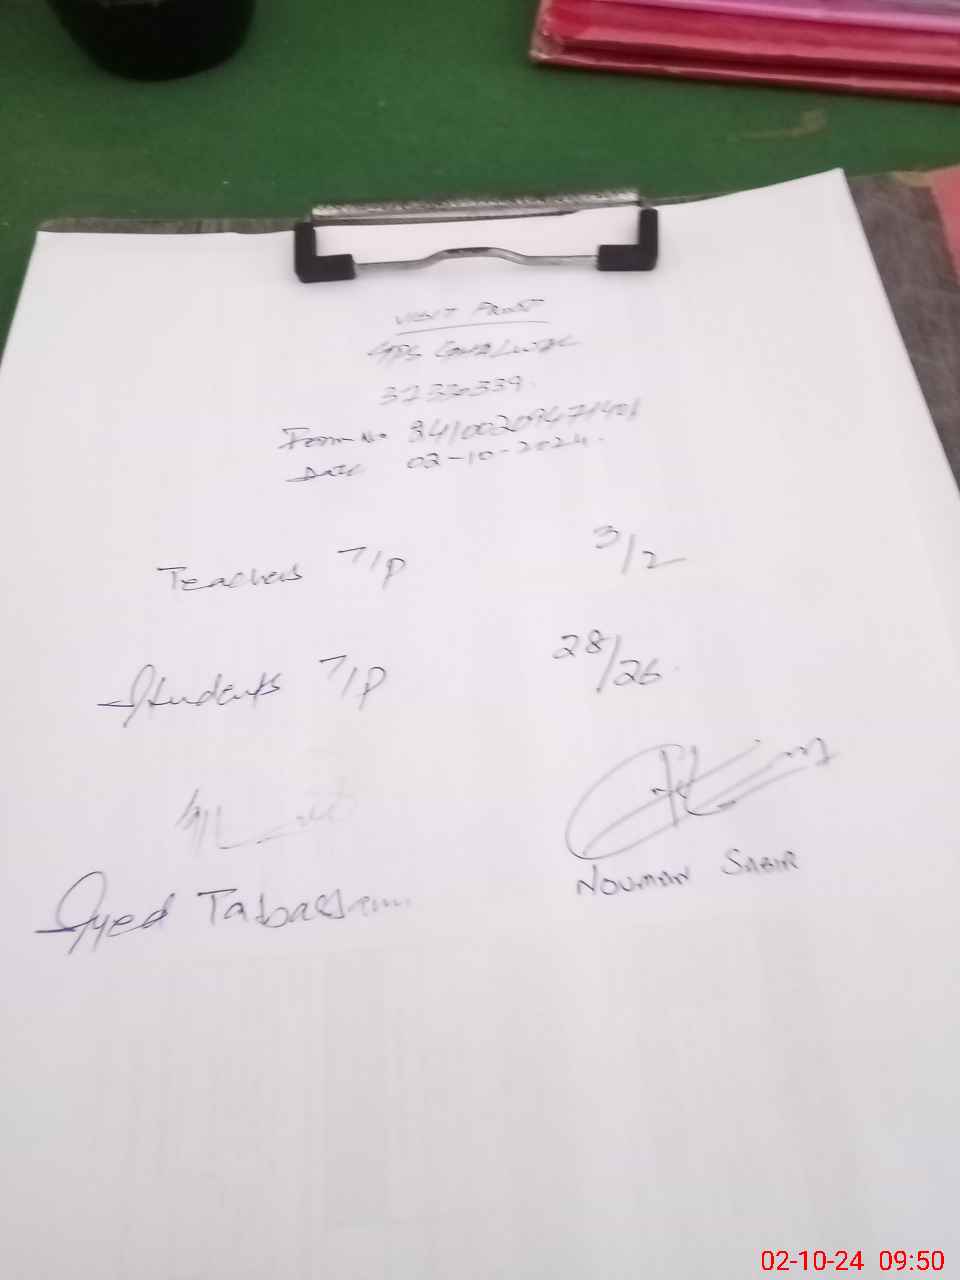 VISIT PROOF
GPS
37330339
Form No 84100209471401
Date 02-10-2024.
Teachers T/P 3/2
Students T/P 28/26
Syed Tabassam
NOUMAN SABIR
02-10-24 09:50